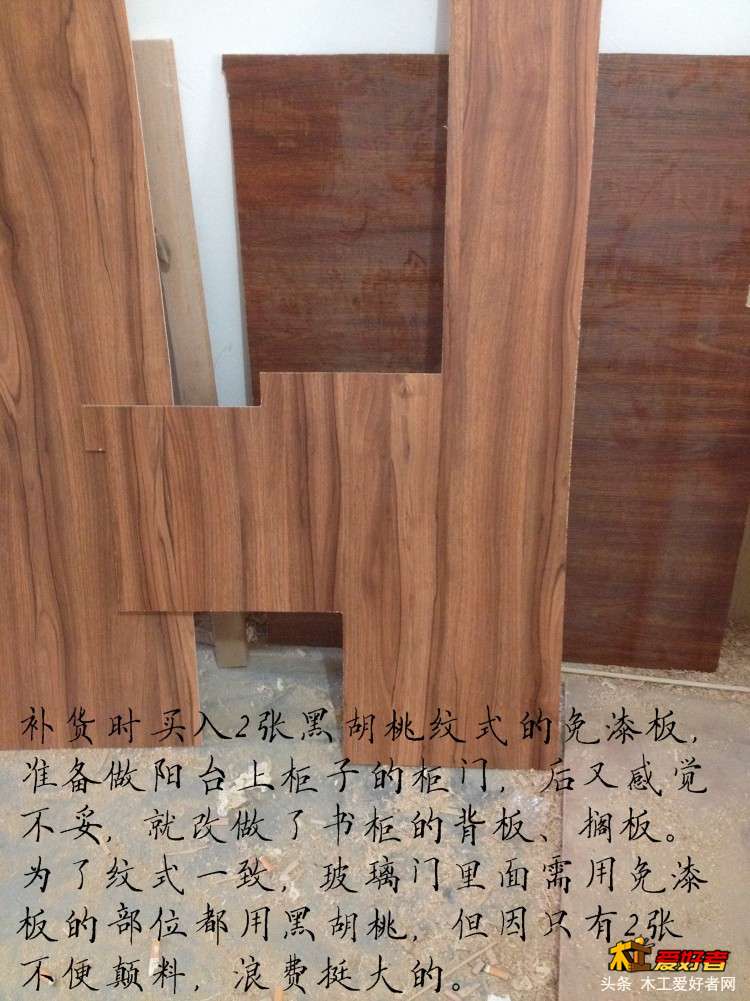 补货时买入2张黑胡桃纹式的免漆板，
准备做阳台上柜子的柜门，后又感觉
不妥，就改做了书柜的背板、搁板。
为了纹式一致，玻璃门里面需用免漆
板的部位都用黑胡桃，但因只有2张
不便颠料，浪费挺大的。
木工爱好者
头条 木工爱好者网